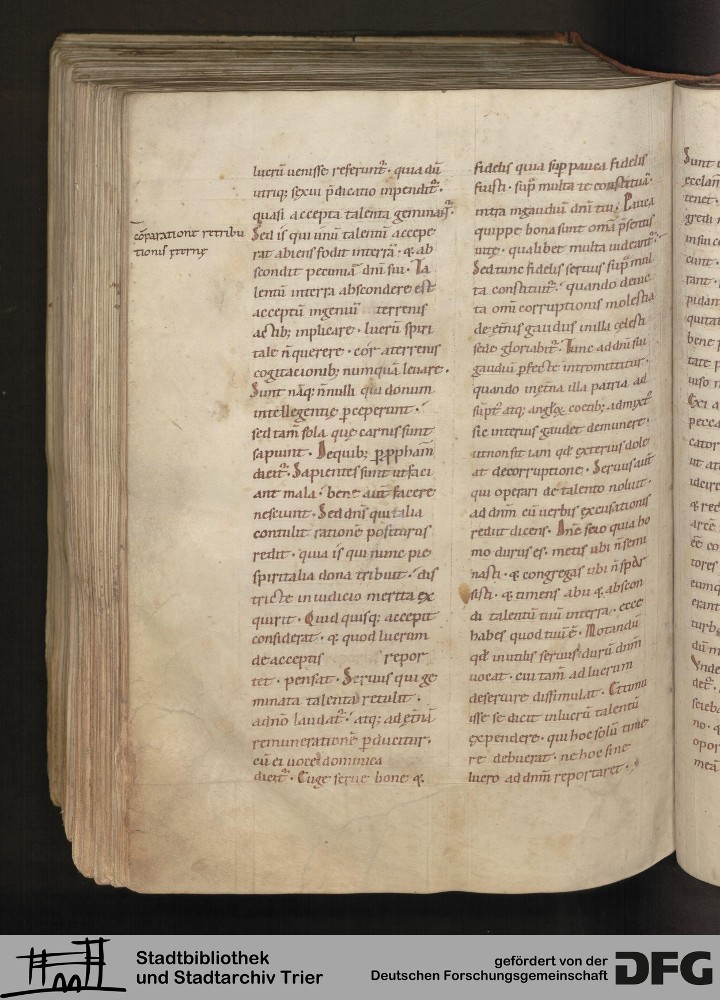 cōparatione retribu
tionis ęternę
lucrū uenisse referunt᷒. quia dū
utriq; sexui p̄dicatio inpendit᷒.
quasi accepta talenta geminant᷒.
Sed is qui unū talentū accepe
rat abiens fodit in terrā. & ab
scondit pecuniā dn̄i sui. Ta
lentū in terra abscondere est
acceptū ingeniū terrenis
actib; inplicare. lucrū spiri
tale n̄ querere. cor a terrenis
cogitacionib; numquā leuare.
Sunt nāq; n̄nulli qui donum
intellegentię perceperunt.
sed tam̄ sola que carnis sunt
sapiunt. De quib; ꝑ ꝓpham̄
dicit᷒. Sapientes sunt ut faci
ant mala. bene aut̄ facere
nesciunt. Sed dn̄s qui talia
contulit rationē positurus
redit. quia is qui nunc pie
spiritalia dona tribuit. dis
tricte in iudicio merita ex
quirit. Quid quisq; accepit
considerat. & quod lucrum
de acceptis repor
tet. pensat. Seruus qui ge
minata talenta retulit.
a dn̄o laudat᷒. atq; ad et̄nā
remunerationē ꝑducitur.
cū ei uoce dominica
dicit᷒. Euge serue bone &
fidelis quia sup̄ pauca fidelis
fuisti. sup̄ multa te constituā.
intra in gaudiū dn̄i tui. Pauca
quippe bona sunt om̄a p̄sentis
uite. qualibet multa uideant᷒.
Sed tunc fidelis seruus sup̄ mul
ta constituit᷒. quando deuic
ta om̄i corruptionis molestia
de et̄nis gaudiis in illa celesti
sede gloriabit᷒. Tunc ad dn̄i sui
gaudiū ꝑfecte intromittitur.
quando in et̄na illa patria ad
sūpt᷒ atq; angloꝝ coetib; admixt᷒
sic interius gaudet de munere.
ut non sit iam qđ exterius dole
at de corruptione. Seruus aut̄
qui operari de talento noluit.
ad dn̄m cū uerbis excusationis
rediit dicens. Dn̄e scio quia ho
mo durus es. metis ubi n̄ semi
nasti. & congregas ubi n̄ spar
sisti. & timens abii & abscon
di talentū tuū in terra. ecce
habes quod tuū ē. Notandū
qđ inutilis seruus durū dn̄m
uocat. cui tam̄ ad lucrum
deseruire dissimulat. Et timu
isse se dicit in lucrū talentū
expendere. qui hoc solū time
re debuerat. ne hoc sine
lucro ad dn̄m reportaret.
Stadtbibliothek
und Stadtarchiv Trier
gefördert von der
Deutschen Forschungsgemeinschaft
DFG